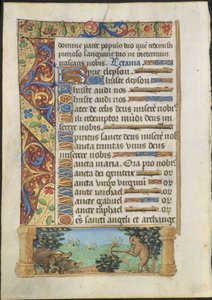 domine parce populo tuo quē redemisti
precioso sanguine tuo ne in eternum
irascaris nobis. Letania.
Kyrie eleyson.
Christe eleyson.
Christe audi nos
Pater de celis deus miserē nobis
Fili redemptor mūdi deus
mei nobis
Spiritus sancte deus miserē nobis
Sancta trinitas vnus deus
miserē nobis
Sancta maria. Ora pro nobis
Sancta dei genitrix or
Sancta virgo virginū or
Sancte michael or
Sancte gabriel or
Sancte raphael or
Oēs sancti angeli et archange